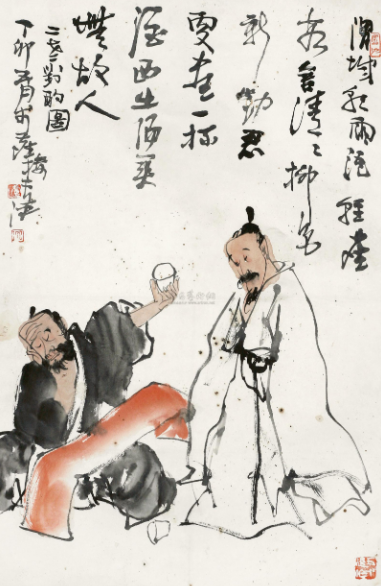 渭城朝雨浥輕塵
客舍清々柳色
新勸君
更盡一杯
酒西出陽關
無故人
對酌圖
丁卯